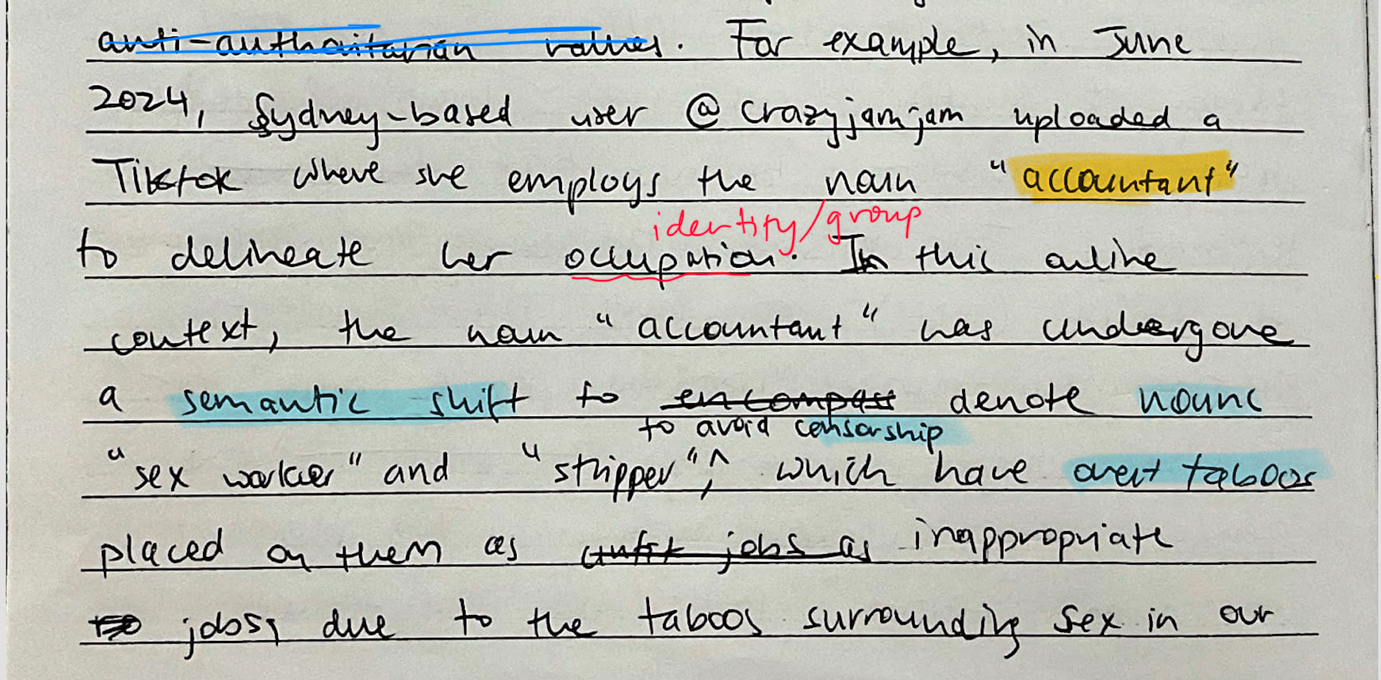 anti-authoritarian values. For example, in June
2024, Sydney-based user @crazyjamjam uploaded a
Tiktok where she employs the noun "accountant"
identity/group
to delineate her occupation. In this online
context, the noun "accountant" has undergone
a semantic shift to encompass denote nouns
to avoid censorship
"sex worker" and "stripper"^, which have overt taboos
placed on them as jobs as inappropriate
jobs, due to the taboos surrounding sex in our